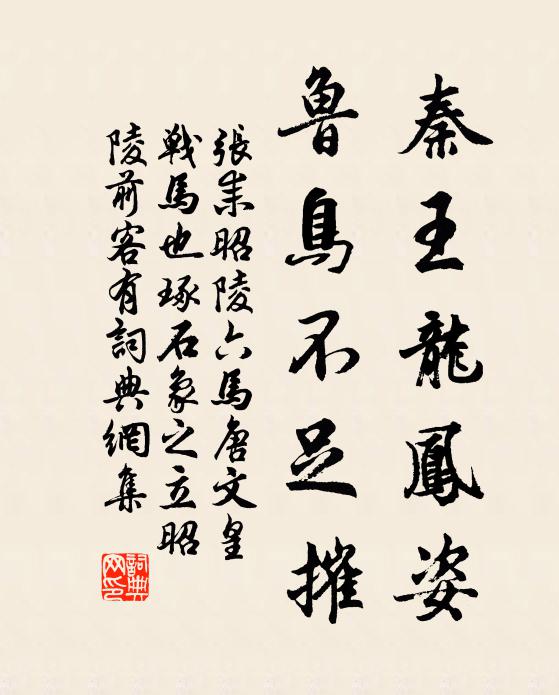 秦王龍鳳姿
魯鳥不足摧
張耒昭陵六馬唐文皇
戰馬也琢石象之立昭
陵前客有詞典網集
詞典网印